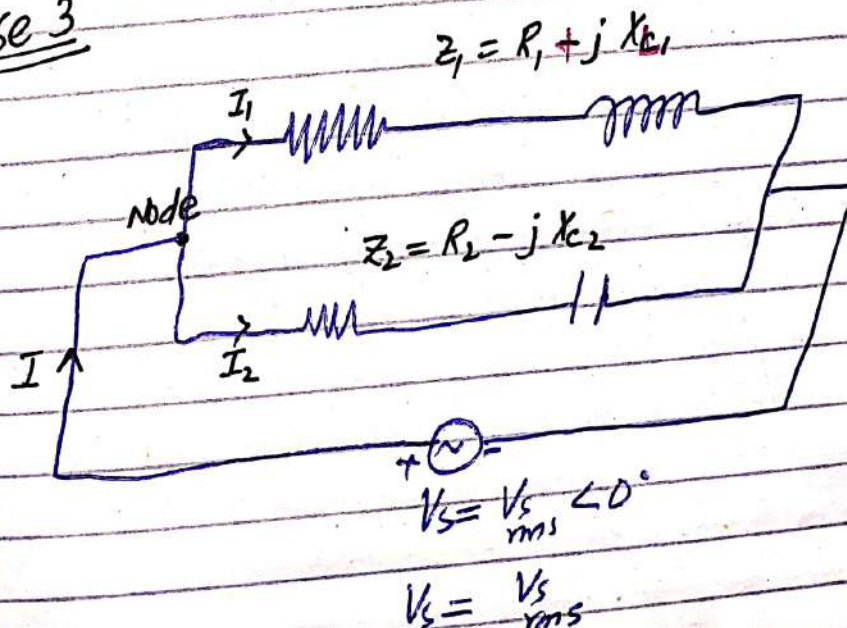 se 3
Z₁ = R₁ + j X_L₁
I₁
Node
Z₂ = R₂ - j X_C₂
I
I₂
+ ~ -
V_S = V_S rms <0°
V_S = V_S rms